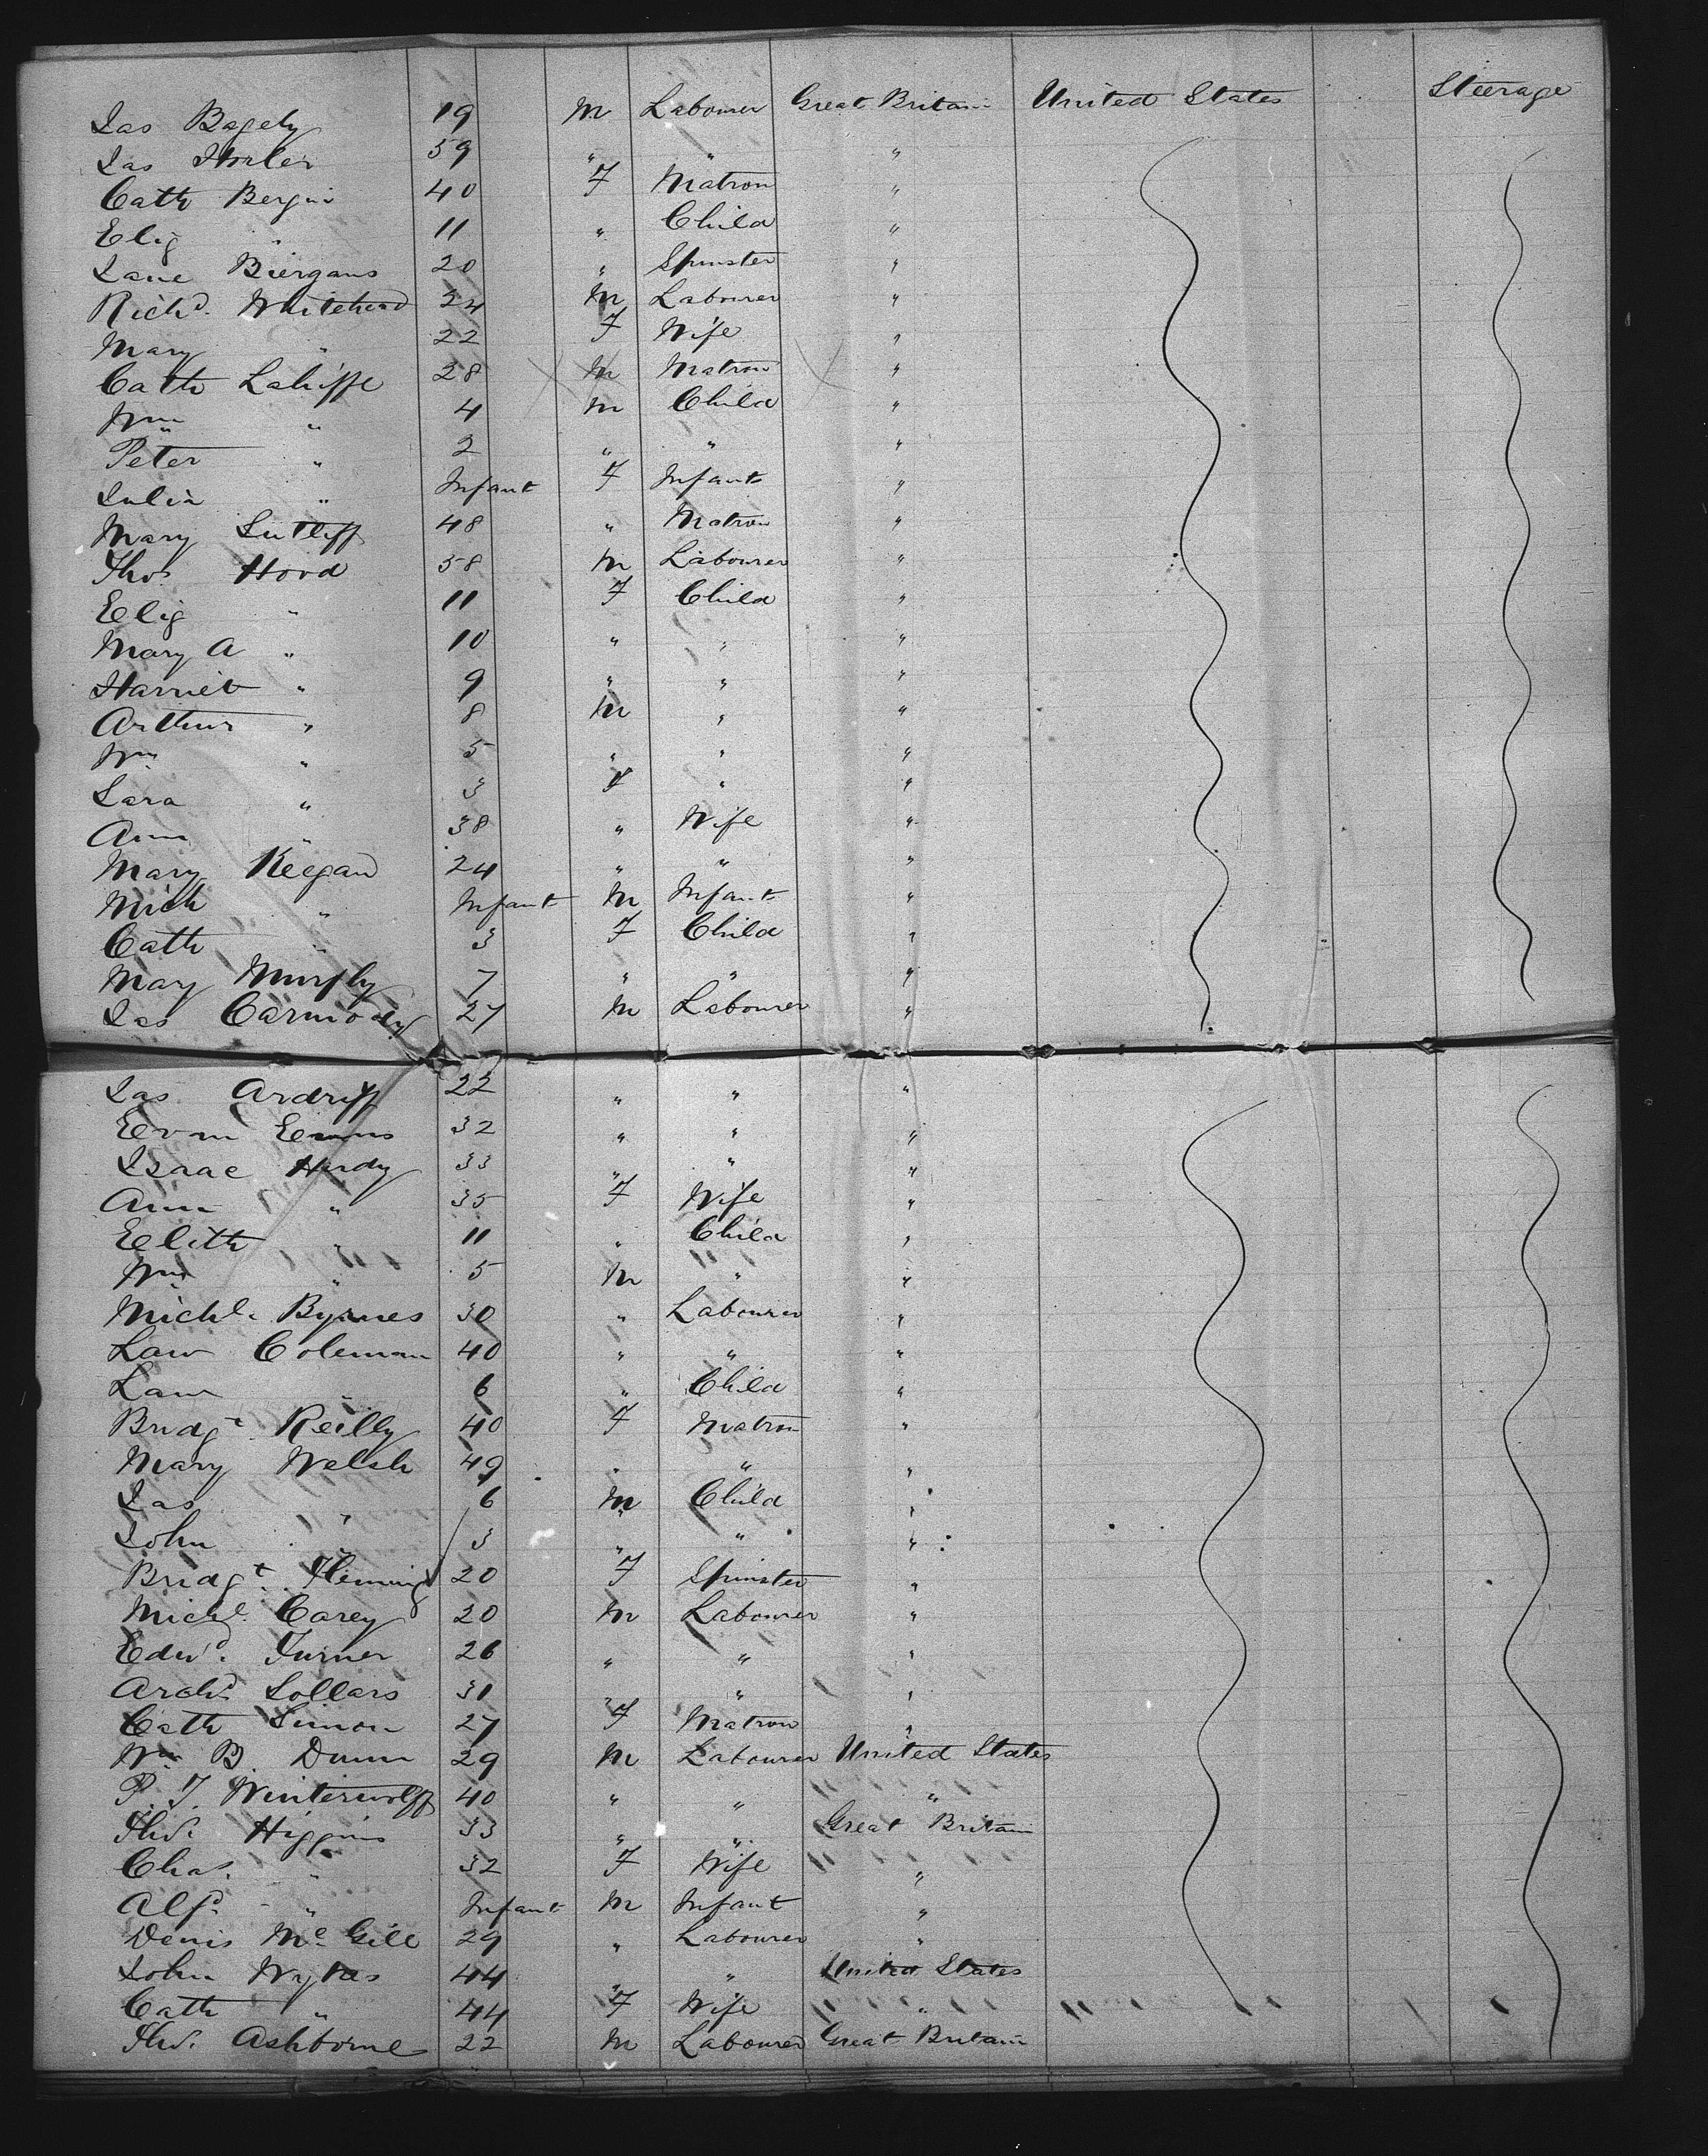 Jas Bagely 19 M Labourer Great Britain United States Steerage
Jas Horler 59 " " "
Cath Bergin 40 F Matron "
Eliz " 11 " Child "
Jane Biergans 20 " Spinster "
Richd. Whitehead 24 M Labourer "
Mary " 22 F Wife "
Cath Lahiffe 28 M Matron "
Wm " 4 M Child "
Peter " 2 " " "
Julia " Infant F Infant "
Mary Sutliff 48 " Matron "
Thos. Hood 58 M Labourer "
Eliz " 11 F Child "
Mary A " 10 " " "
Harriet " 9 " " "
Arthur " 8 M " "
Wm " 5 " " "
Sara " 3 F " "
Ann " 38 " Wife "
Mary Keegan 24 " " "
Mich " Infant M Infant "
Cath " 3 F Child "
Mary Murphy 7 " " "
Jas Carmody 27 M Labourer "
Jas Ardriff 22 " " "
Evan Evans 32 " " "
Isaac Hardy 33 " " "
Ann " 35 F Wife "
Elith " 11 " Child "
Wm " 5 M " "
Michl. Byrnes 30 " Labourer "
Law Coleman 40 " " "
Law " 6 " Child "
Bridgt. Reilly 40 F Matron "
Mary Welsh 49 " " "
Jas " 6 M Child "
John " 3 " " "
Bridgt. Fleming 20 F Spinster "
Michl. Carey 20 M Labourer "
Edwd. Turner 26 " " "
Archd. Sollars 31 " " "
Cath Simon 27 F Matron "
Wm B. Dunn 29 M Labourer United States
P. J. Winterwolff 40 " " "
Thos. Higgins 33 " " Great Britain
Chas. " 32 F Wife "
Alfd. " Infant M Infant "
Denis Mc Gill 29 " Labourer "
John Wykes 44 " " United States
Cath " 44 F Wife "
Thos. Ashborne 22 M Labourer Great Britain